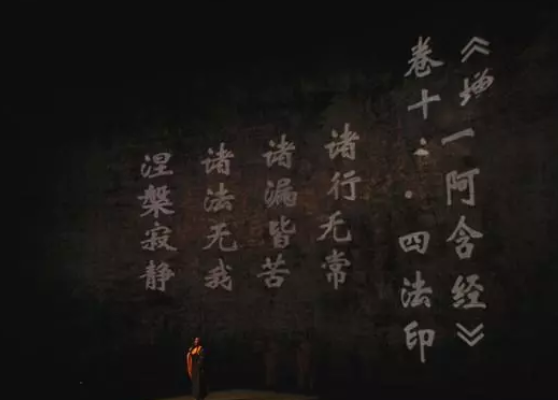 《增一阿含经》
卷十二·四法印
诸行无常
诸漏皆苦
诸法无我
涅槃寂静